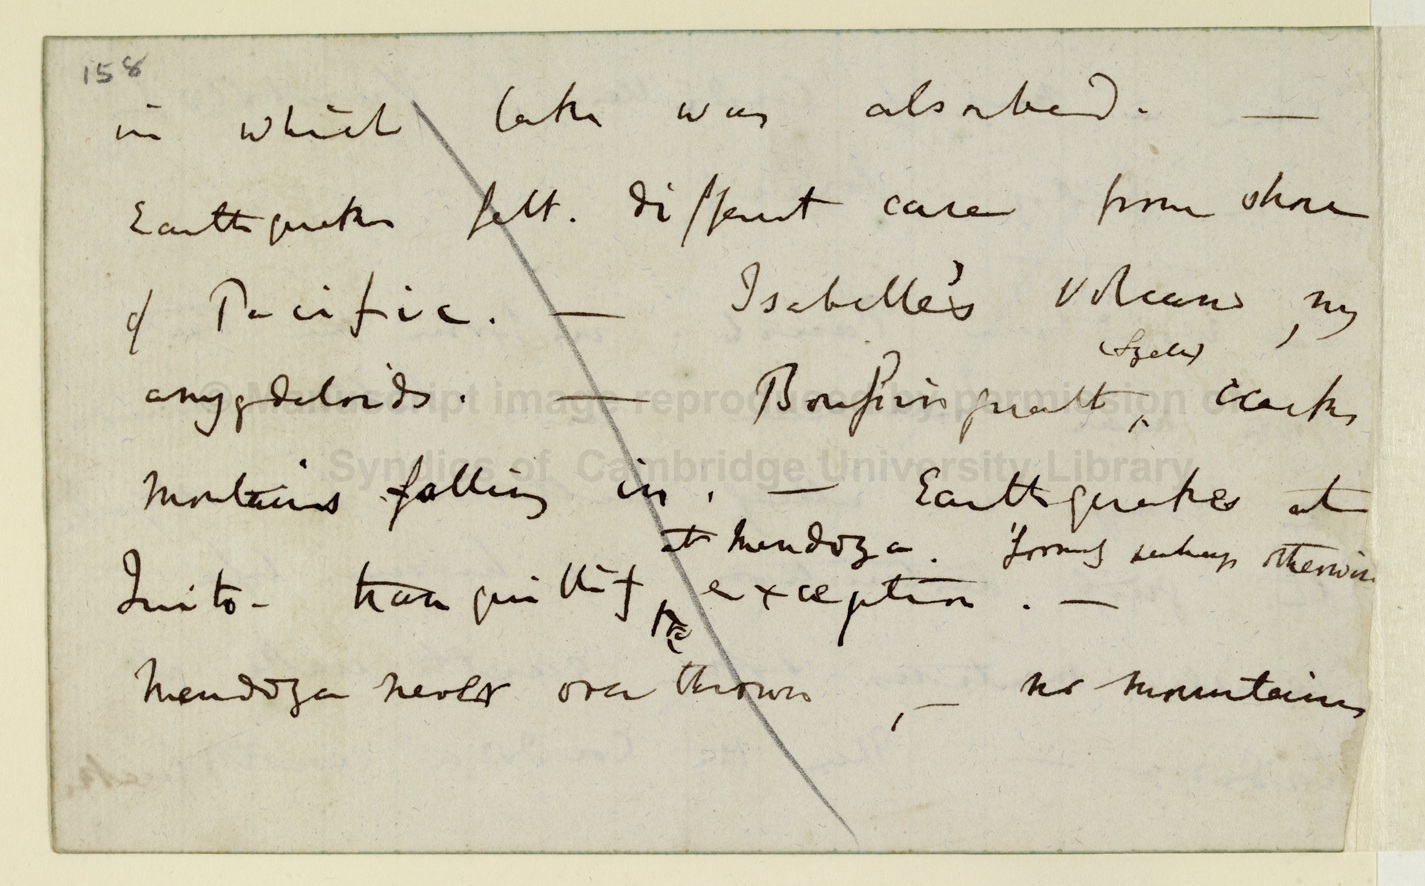 158
in which lake was absorbed. —
Earthquakes felt. different case from shore
of Pacific. — Isabelle's Volcano, my
(Lyell)
amygdaloids. — Boussingault, cracks
mountains falling in. — Earthquakes at
at Mendoza. formerly perhaps otherwise
Quito — tranquillity, exception. —
Mendoza never overthrown, — no mountains
© Manuscript image reproduced by permission of
Syndics of Cambridge University Library